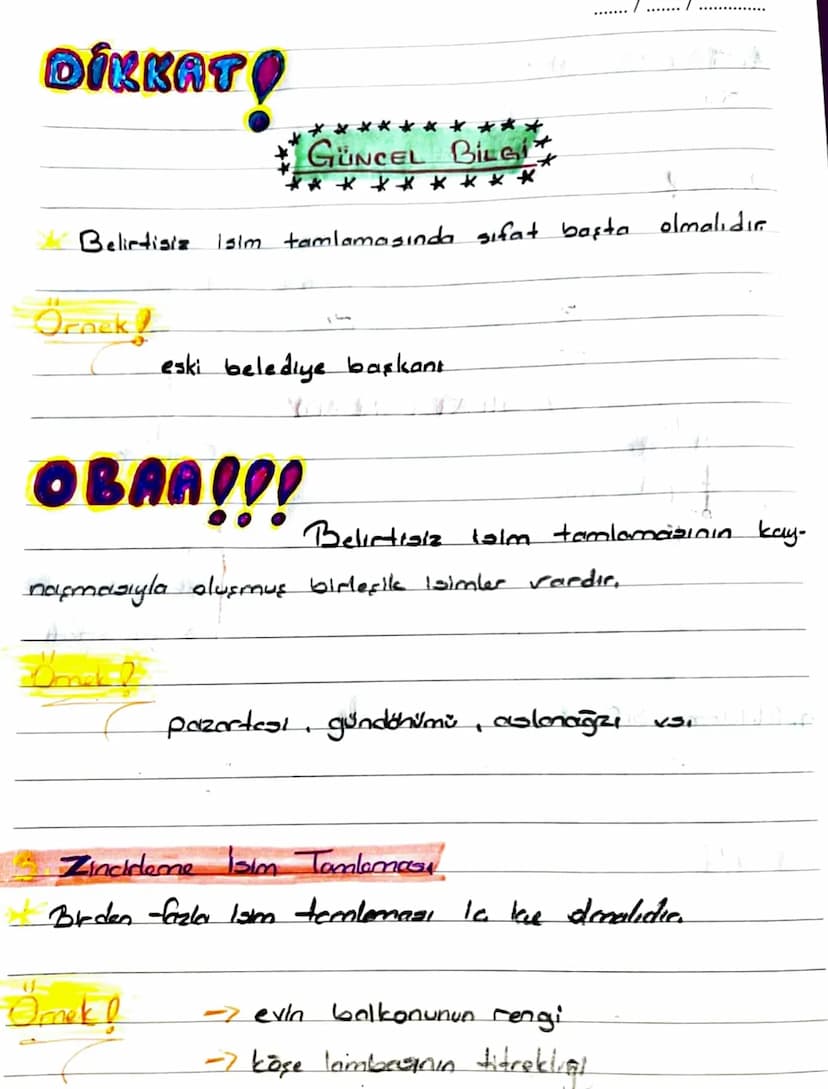 ....... / ....... / ..............
DİKKAT!
GÜNCEL BİLGİ
Belirtisiz isim tamlamasında sıfat başta olmalıdır
Örnek!
eski belediye başkanı
OBAA!!!
Belirtisiz isim tamlamasının kay-
naşmasıyla oluşmuş birleşik isimler vardır.
Örnek!
pazartesi, gündönümü, aslanağzı vs.
3 Zincirleme İsim Tamlaması
Birden fazla isim tamlaması iç içe olmalıdır.
Örnek!
→ evin balkonunun rengi
→ köşe lambasının titrekliği